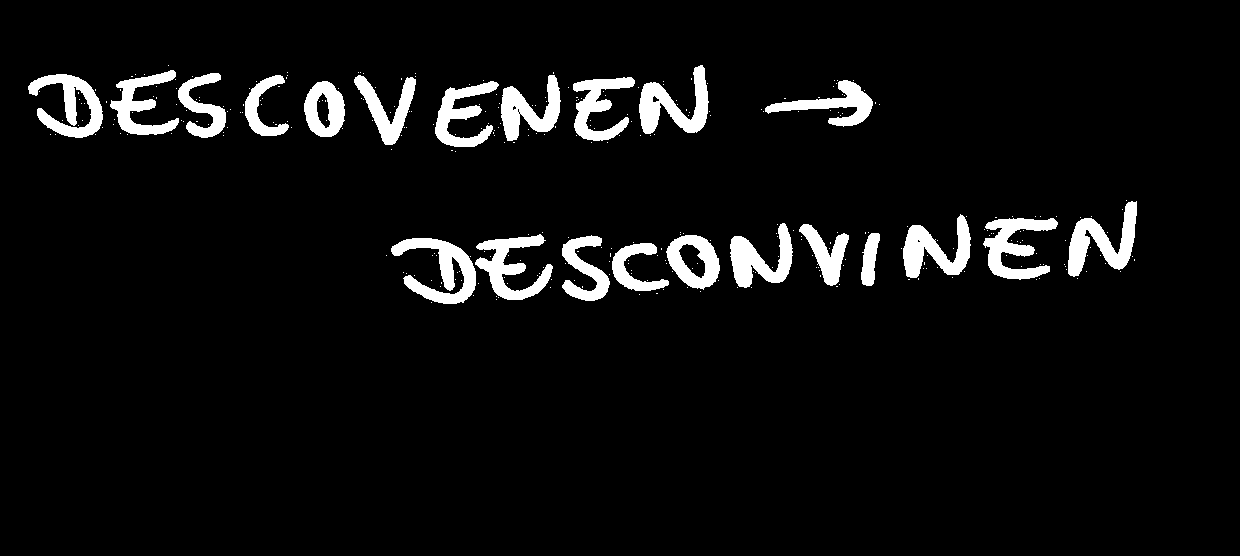 DESCOVENEN →
DESCONVINEN